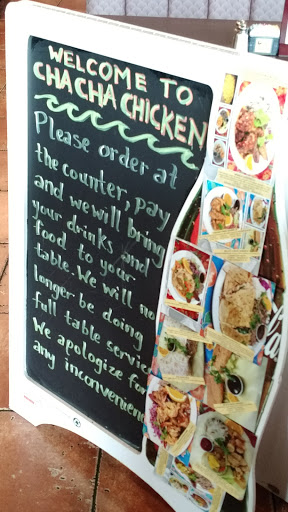 WELCOME TO
CHA CHA CHICKEN
Please order at
the counter, pay
and we will bring
your drinks and
food to your
table. We will no
longer be doing
full table service
We apologize for
any inconvenienc